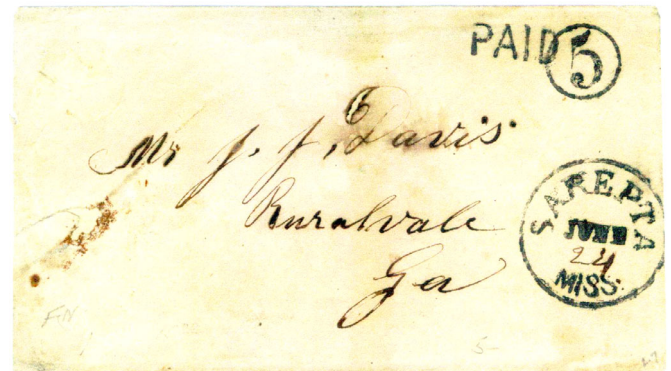 PAID 5
Mr J. J. Davis.
Ruralvale
Ga
SAREPTA
JUNE
24
MISS.
FIN
5-